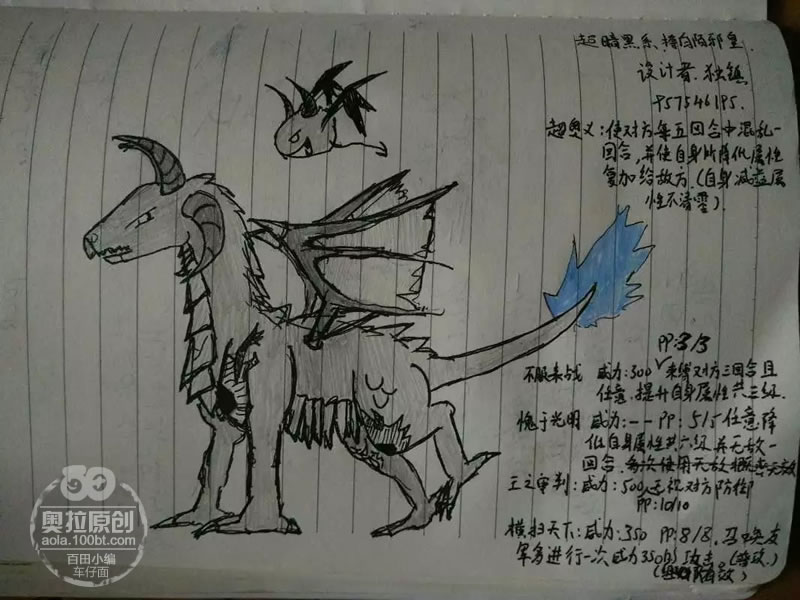 超暗黑系
邪皇
设计者：独镇
957546195.
超奥义：使对方每五回合中混乱一
回合，并使自身所降低属性
复加给敌方.(自身减益属
性不清零).
PP:3/3
不服来战 威力:300 束缚对方三回合且
任意提升自身属性共三级.
愧于光明 威力:-- PP:5/5 任意降
低自身属性共六级并无敌一
回合.
王之审判:威力:500 无视对方防御
PP:10/10
横扫天下:威力:350 PP:8/8.召唤友
军多进行一次威力350的攻击。
奥拉原创
aola.100bt.com
百田小编
车仔面